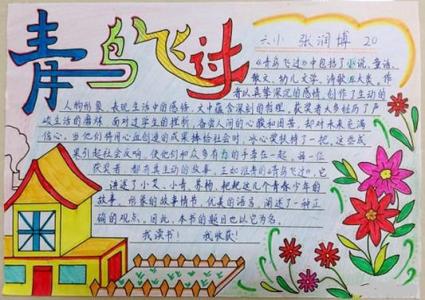 青鸟飞过
六小 张润博 20
《青鸟飞过》中包括了小说、童话、
散文、幼儿文学、诗歌五大类。作
者以真挚深沉的感情,创作了生动的
人物形象,表现生活中的感情,文中蕴含深刻的哲理。获奖者大多经历了严
峻生活的磨练,面对过学生的挫折,备尝人间的心酸和困苦,却对未来充满
信心。当他们将用心血创造的成果捧给社会时,冰心奖扶持了一把,这些成
果引起社会反响,使他们和众多有力的手牵在一起。每一位
获奖者,都有其生动的故事。正如准青的《青鸟飞过》,它
讲述了小艾、小青、苏杨、耙耙这几个青春少年的
故事。形象的故事情节,优美的语言,阐述了一种正
确的观点。因此,本书的题目也以它为名。
我读书! 我收获!